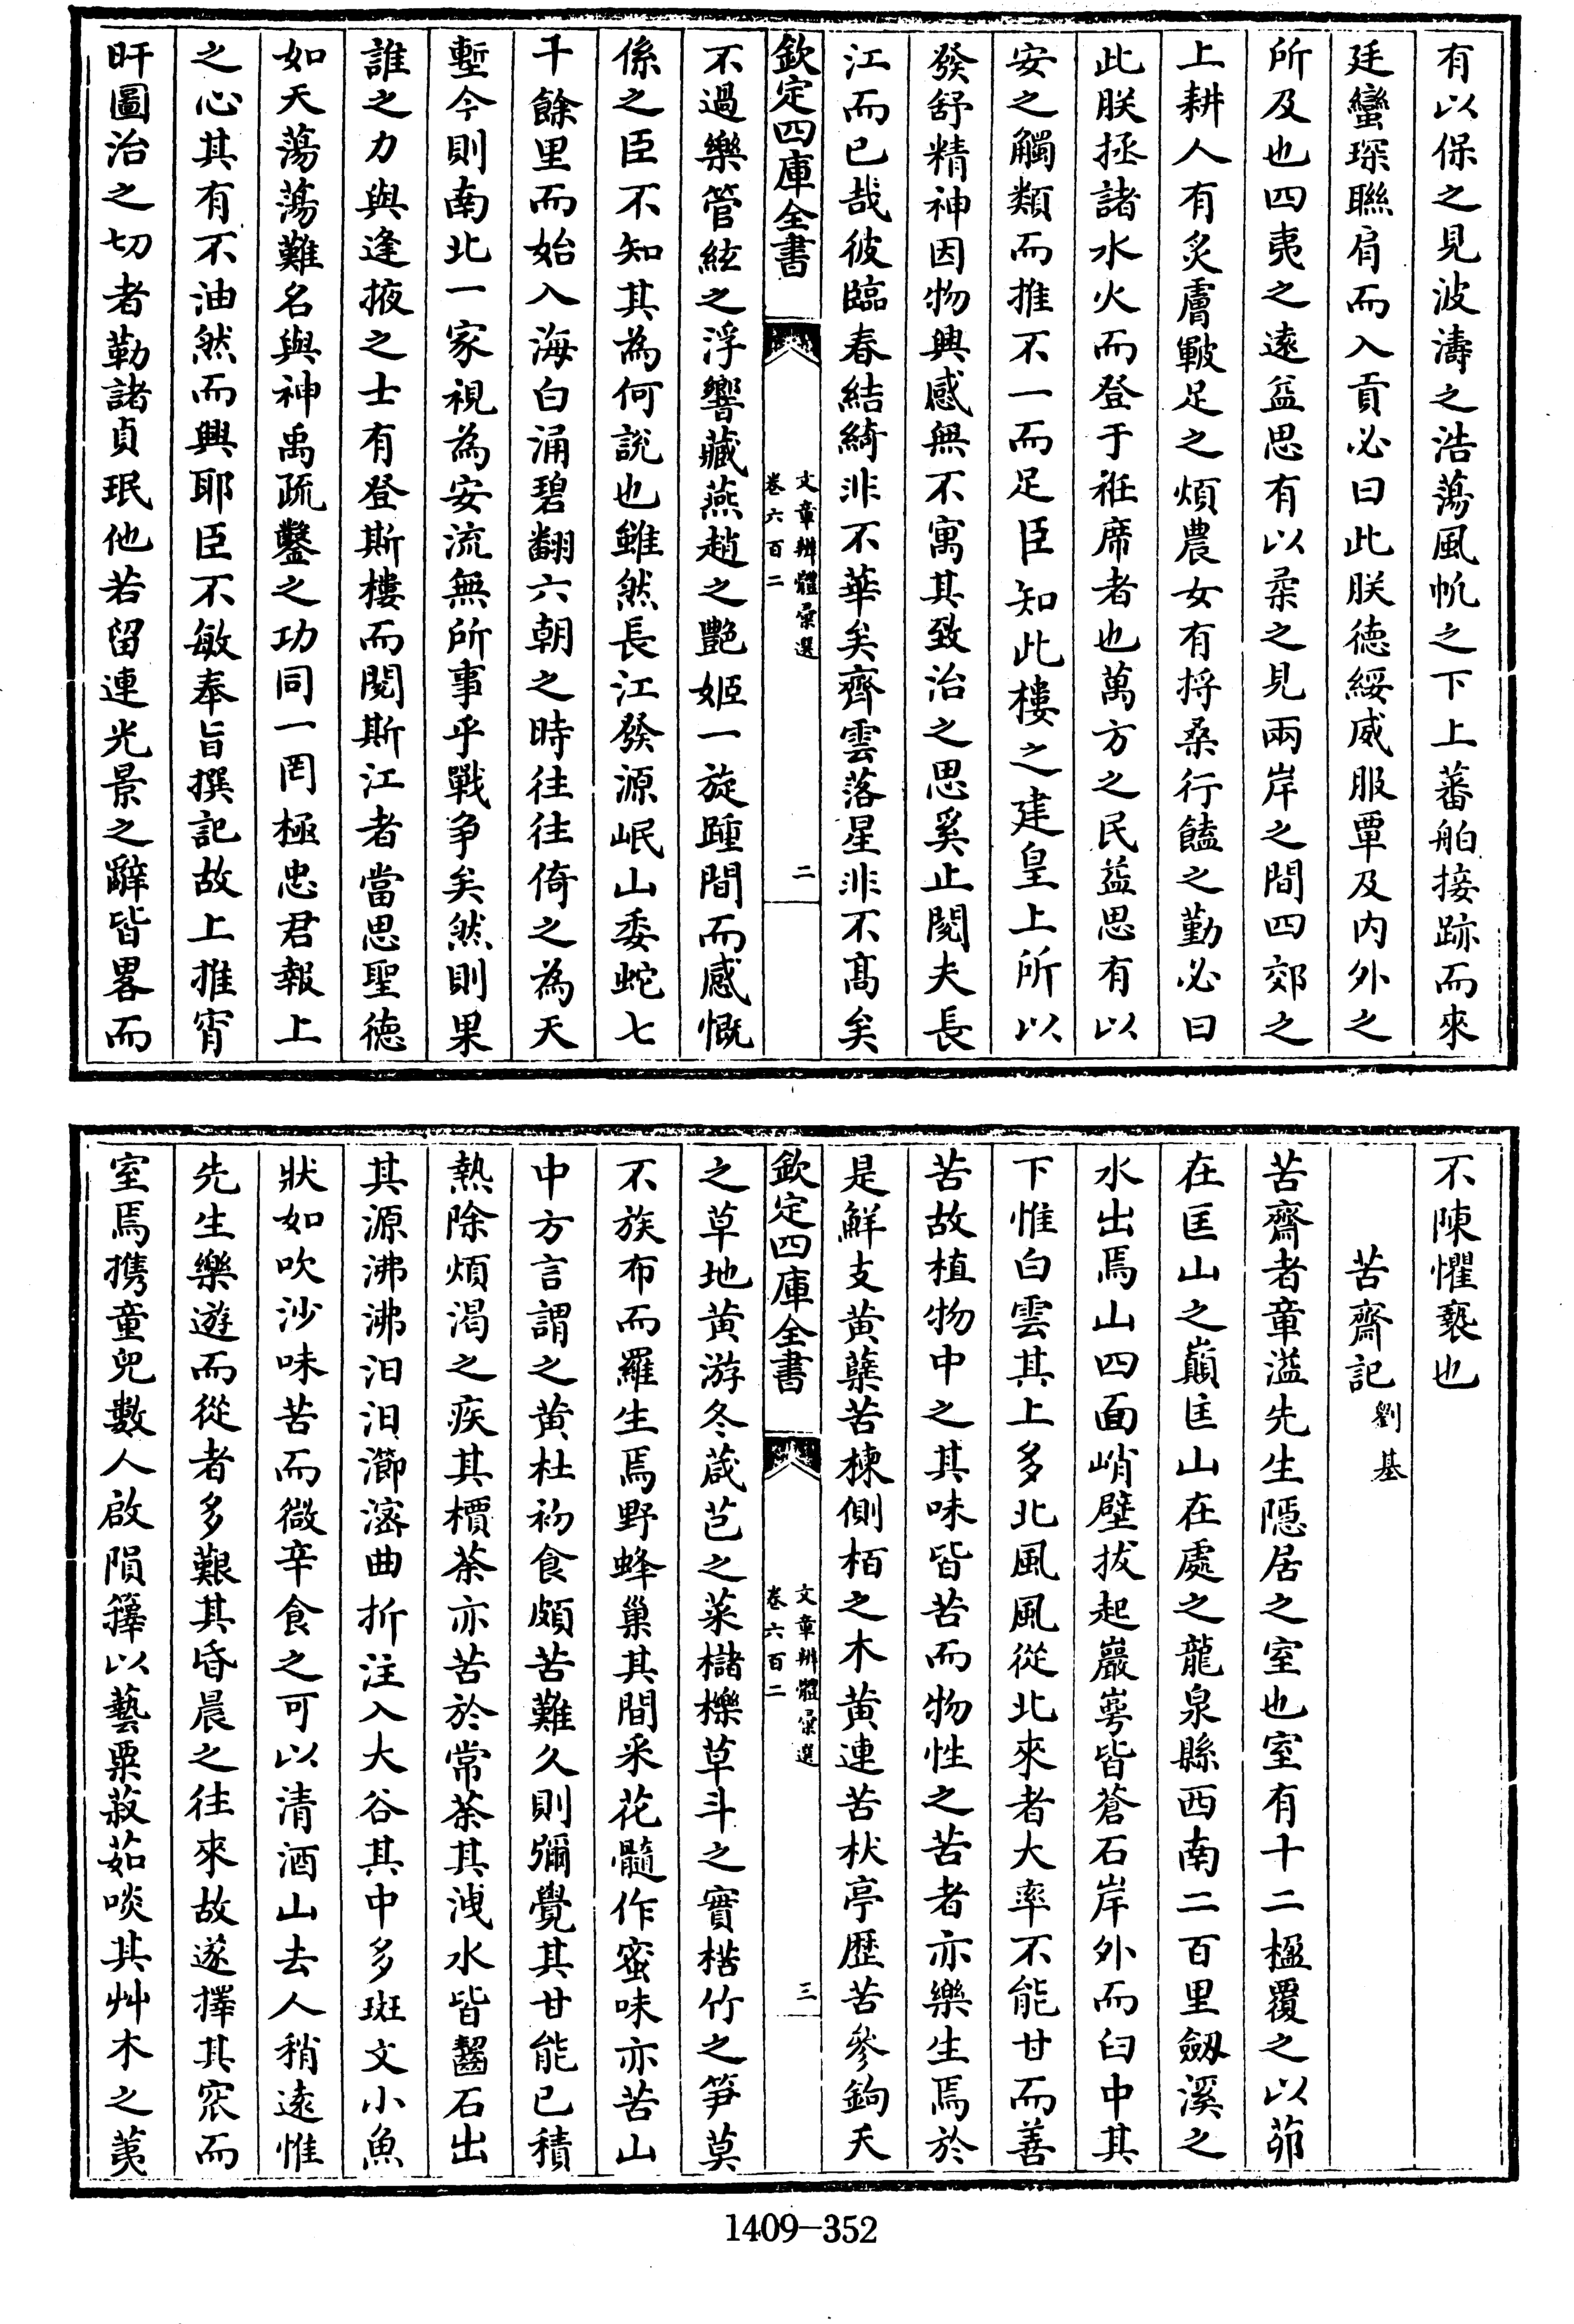 有以保之見波濤之浩蕩風帆之下上蕃舶接跡而來
廷蠻琛聯肩而入貢必曰此朕德綏威服覃及内外之
所及也四夷之遠益思有以柔之見兩岸之間四郊之
上耕人有炙膚皸足之煩農女有捋桑行饁之勤必曰
此朕拯諸水火而登于袵席者也萬方之民益思有以
安之觸類而推不一而足臣知此樓之建皇上所以
發舒精神因物興感無不寓其致治之思奚止閱夫長
江而已哉彼臨春結綺非不華矣齊雲落星非不髙矣
欽定四庫全書
文章辨體彚選
卷六百二
二
不過樂管絃之浮響藏燕趙之艷姬一旋踵間而感慨
係之臣不知其為何說也雖然長江發源岷山委蛇七
千餘里而始入海白涌碧翻六朝之時往往倚之為天
塹今則南北一家視為安流無所事乎戰争矣然則果
誰之力與逢掖之士有登斯樓而閱斯江者當思聖德
如天蕩蕩難名與神禹疏鑿之功同一罔極忠君報上
之心其有不油然而興耶臣不敏奉旨撰記故上推宵
旰圖治之切者勒諸貞珉他若留連光景之辭皆畧而
不陳懼褻也
苦齋記劉基
苦齋者章溢先生隱居之室也室有十二楹覆之以茆
在匡山之巔匡山在處之龍泉縣西南二百里劔溪之
水出焉山四面峭壁拔起巖崿皆蒼石岸外而臼中其
下惟白雲其上多北風風從北來者大率不能甘而善
苦故植物中之其味皆苦而物性之苦者亦樂生焉於
是鮮支黄蘗苦楝側栢之木黄連苦杕亭歴苦參鉤夭
欽定四庫全書
文章辨體彚選
卷六百二
三
之草地黄游冬葴芑之菜櫧櫟草斗之實楛竹之笋莫
不族布而羅生焉野蜂巢其間釆花髓作蜜味亦苦山
中方言謂之黄杜初食頗苦難久則彌覺其甘能已積
熱除煩渴之疾其檟荼亦苦於常荼其洩水皆齧石出
其源沸沸汩汩瀄滵曲折注入大谷其中多斑文小魚
狀如吹沙味苦而微辛食之可以清酒山去人稍遠惟
先生樂遊而從者多艱其昏晨之往來故遂擇其窊而
室焉携童兒數人啟隕籜以藝粟菽茹啖其艸木之荑
1409—352